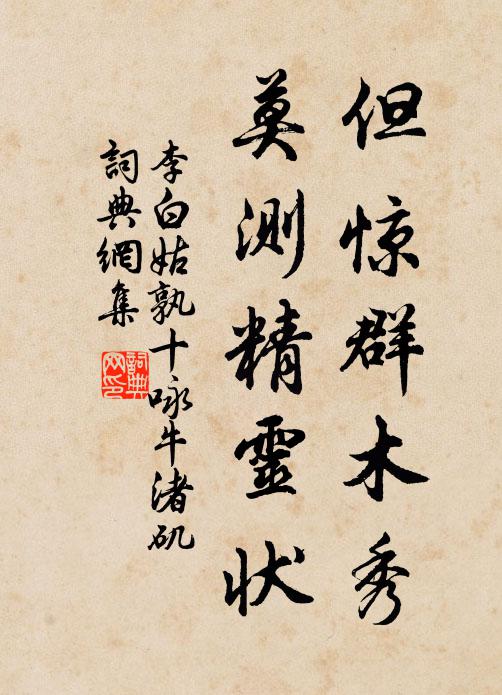 但惊群木秀
莫测精靈状
李白姑孰十咏牛渚矶
詞典網集
詞典网印